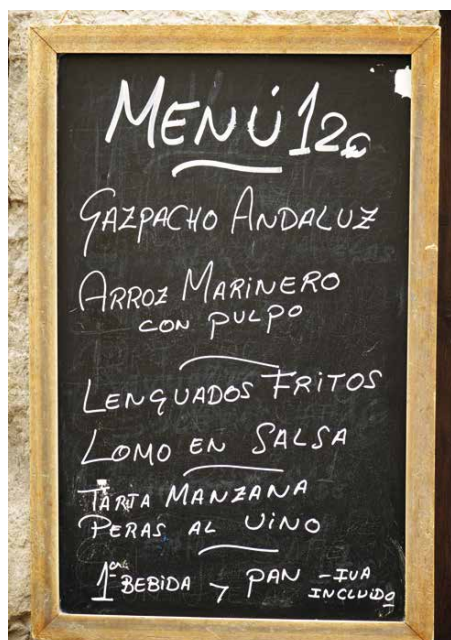 MENÚ 12€
GAZPACHO ANDALUZ
ARROZ MARINERO
CON PULPO
LENGUADOS FRITOS
LOMO EN SALSA
TARTA MANZANA
PERAS AL VINO
1ª BEBIDA Y PAN - IVA
INCLUIDO